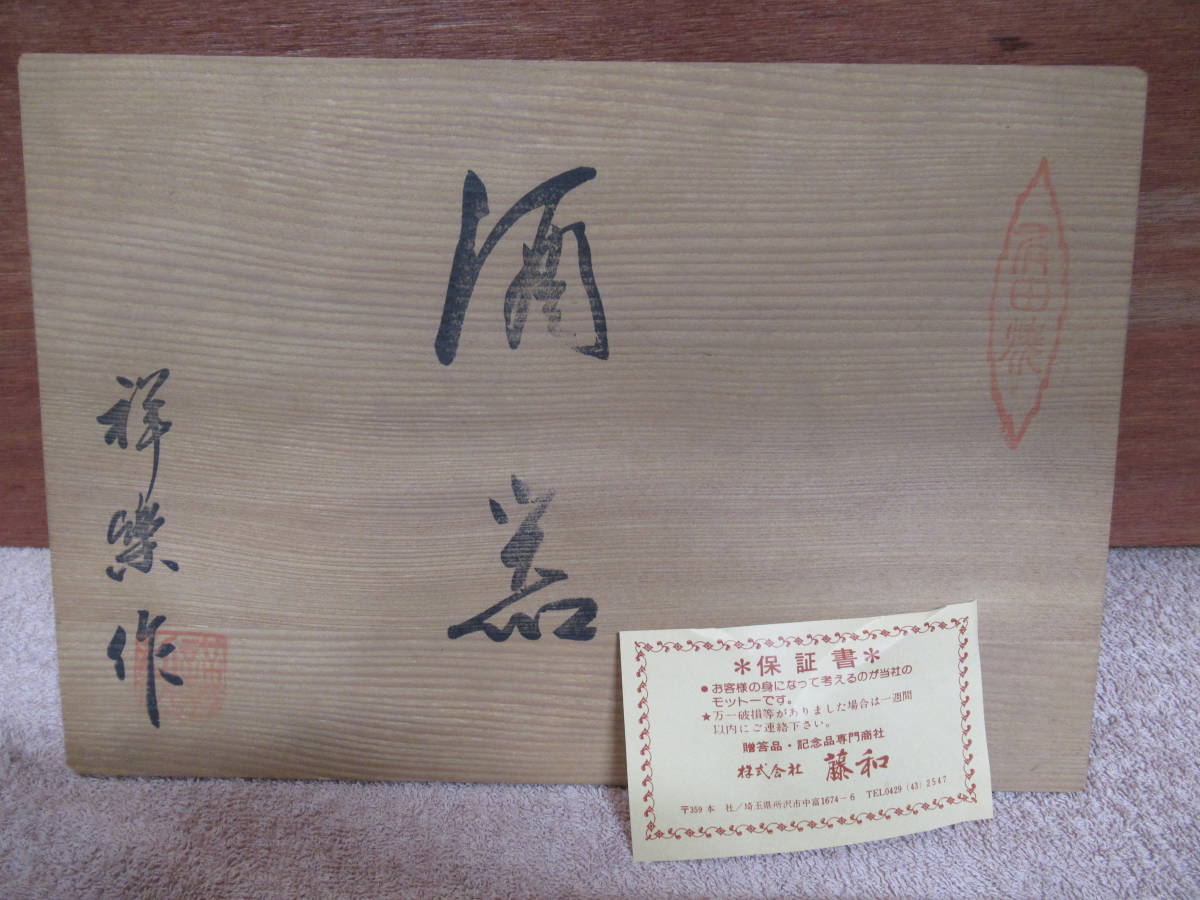 酒器
祥楽作
＊保証書＊
●お客様の身になって考えるのが当社の
モットーです。
★万一破損等がありました場合は一週間
以内にご連絡下さい。
贈答品・記念品専門商社
株式会社 藤和
〒359 本 社／埼玉県所沢市中富1674－6 TEL0429 (43) 2547